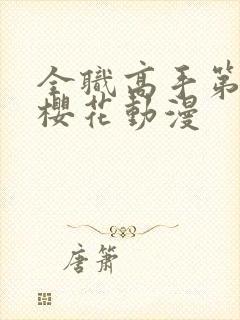 全職高手第
櫻花動漫
唐簫